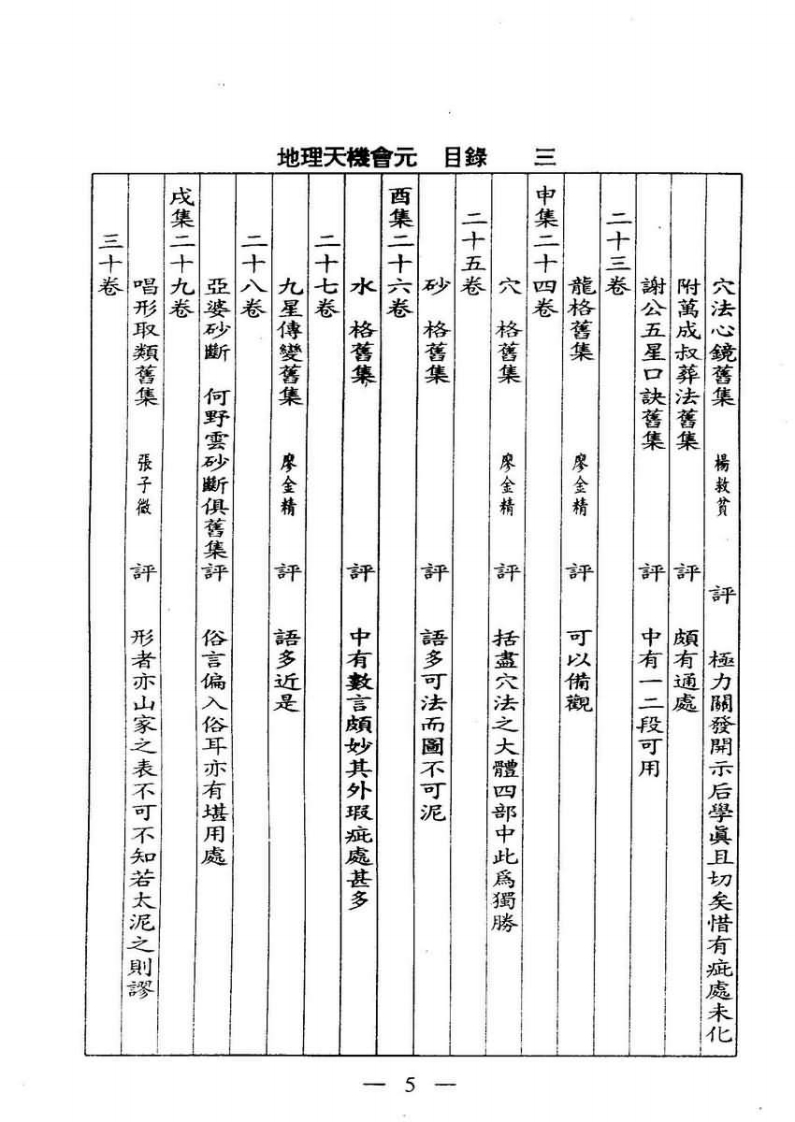 地理天機會元　目錄　三
穴法心鏡舊集　楊救貧　評　極力關發開示后學眞且切矣惜有疵處未化
附萬成叔葬法舊集　評　頗有通處
謝公五星口訣舊集　評　中有一二段可用
二十三卷
龍格舊集　廖金精　評　可以備觀
申集二十四卷
穴　格舊集　廖金精　評　括盡穴法之大體四部中此爲獨勝
二十五卷
砂　格舊集　評　語多可法而圖不可泥
酉集二十六卷
水　格舊集　評　中有數言頗妙其外瑕疵處甚多
二十七卷
九星傳變舊集　廖金精　評　語多近是
二十八卷
亞婆砂斷　何野雲砂斷俱舊集　評　俗言偏入俗耳亦有堪用處
戌集二十九卷
唱形取類舊集　張子微　評　形者亦山家之表不可不知若太泥之則謬
三十卷
— 5 —